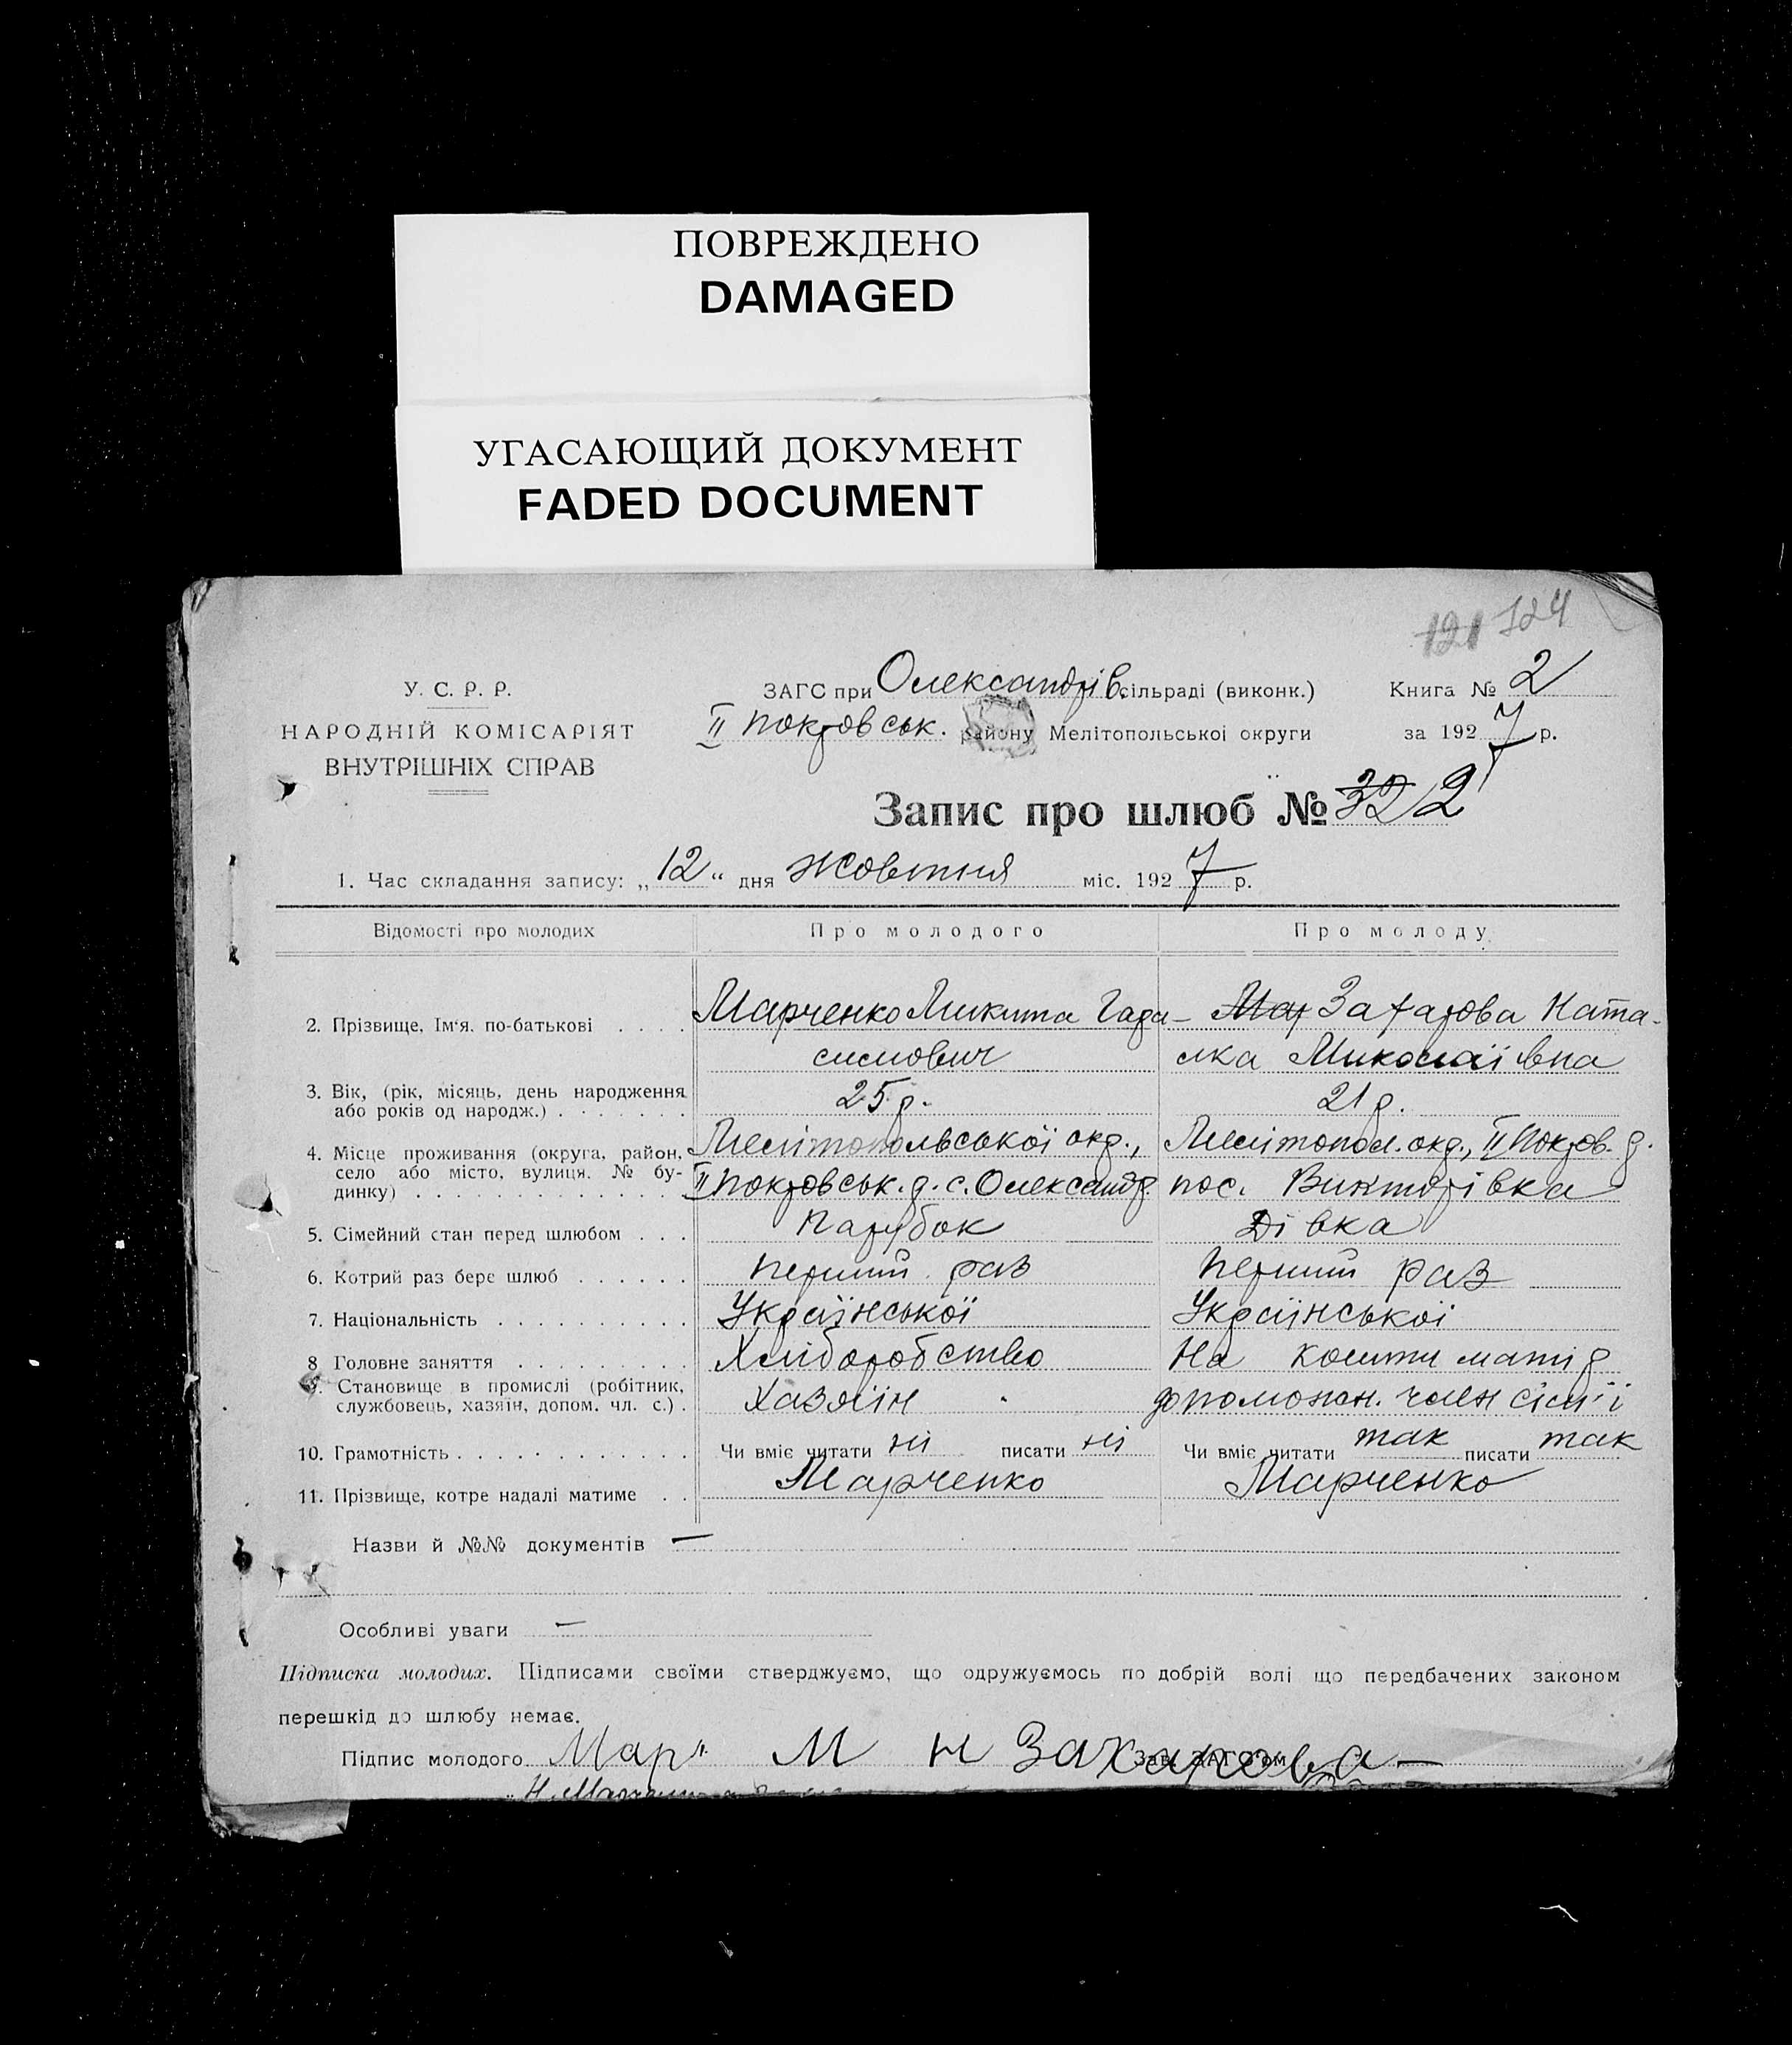 ПОВРЕЖДЕНО
DAMAGED
УГАСАЮЩИЙ ДОКУМЕНТ
FADED DOCUMENT
121 124
У. С. Р. Р.
НАРОДНІЙ КОМІСАРІЯТ
ВНУТРІШНІХ СПРАВ
ЗАГС при Олександрів. сільраді (виконк.)
Книга № 2
II Покровськ. району Мелітопольської округи
за 1927 р.
Запис про шлюб № 32 2
1. Час складання запису: „12“ дня Жовтня міс. 1927 р.
Відомості про молодих Про молодого Про молоду
2. Прізвище, Ім'я, по-батькові . . . . Марченко Микита Гара- Мар Захарова Ната-
симович лка Миколаївна
3. Вік, (рік, місяць, день народження 25 р. 21 р.
або років од народж.) . . . . . . .
4. Місце проживання (округа, район, Мелітопольської окр., Мелітопол. окр., II Покров. р.
село або місто, вулиця, № бу-
динку) . . . . . . . . . . . . . II Покровськ. р. с. Олександр. пос. Викторівка
5. Сімейний стан перед шлюбом . . . Парубок Дівка
6. Котрий раз бере шлюб . . . . . . Перший раз Перший раз
7. Національність . . . . . . . . . . Української Української
8 Головне заняття . . . . . . . . . Хліборобство На кошти матір
9. Становище в промислі (робітник, Хазяїн допоможн. член сім'ї
службовець, хазяїн, допом. чл. с.) .
10. Грамотність . . . . . . . . . . . . Чи вміє читати ні писати ні Чи вміє читати так писати так
11. Прізвище, котре надалі матиме . . Марченко Марченко
Назви й №№ документів —
Особливі уваги —
Підписка молодих. Підписами своїми стверджуємо, що одружуємось по добрій волі що передбачених законом
перешкід до шлюбу немає.
Підпис молодого Мар М Н Захарова
Зав. ЗАГС'ом